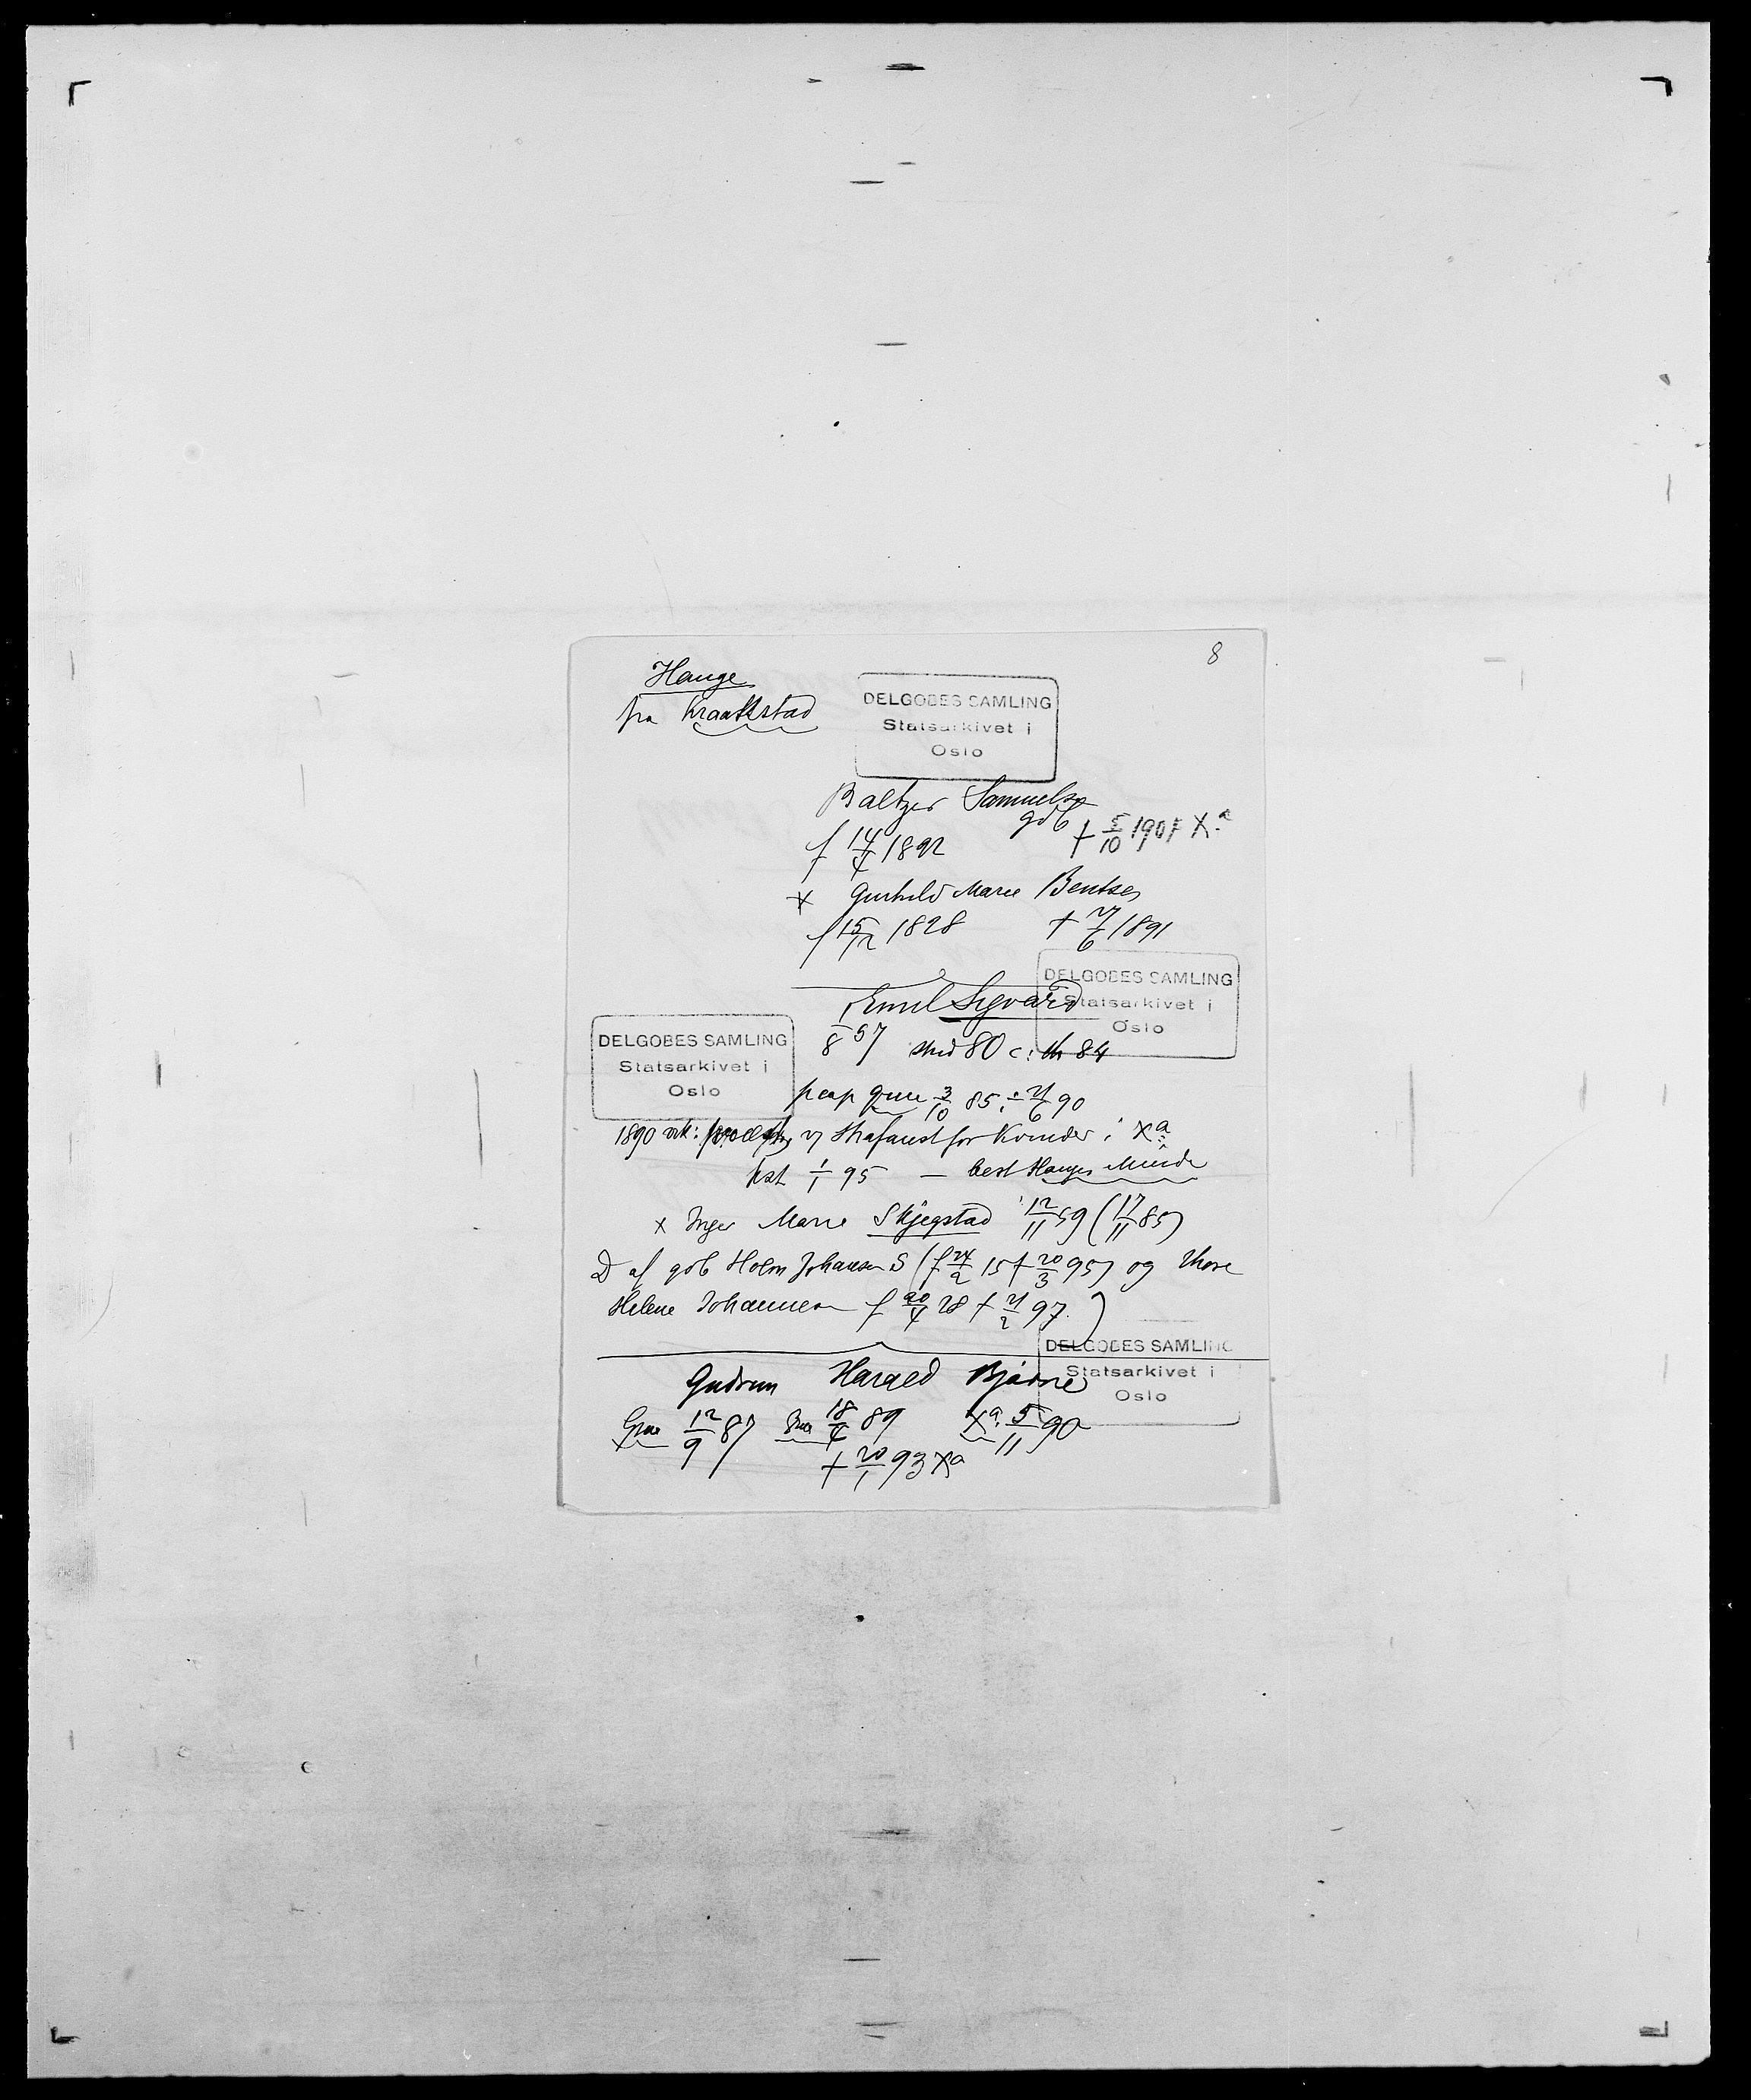 8
Hauge
fra Kraakstad
DELGOBES SAMLING
Statsarkivet i
Oslo
Baltzer Samuels
gdb
f 14/4 1892 † 5/10 1907 Xa
x Gunhild Marie Bentsen
f 15/12 1828 † 27/6 1891
Emil Sigvard
DELGOBES SAMLING
Statsarkivet i
Oslo
DELGOBES SAMLING
Statsarkivet i
Oslo
8 57 stud 80 c: th 84
pcap Grue 3/10 85 ÷ 21/6 90
1890 v Strafanst for Kvinder i Xa
1/1 95 — best Hauges Minde
x Inger Marie Skjegstad 12/11 59 (17/11 85)
D af gdb Holm Johansen S (f 24/2 15 † 20/3 95) og Thore
Helene Johannesen f 20/4 28 † 21/2 97.)
DELGOBES SAMLING
Statsarkivet i
Oslo
Gudrun Harald Bjarne
Grue 12/9 87 Grue 18/4 89 Xa. 5/11 90
† 20/1 93 Xa